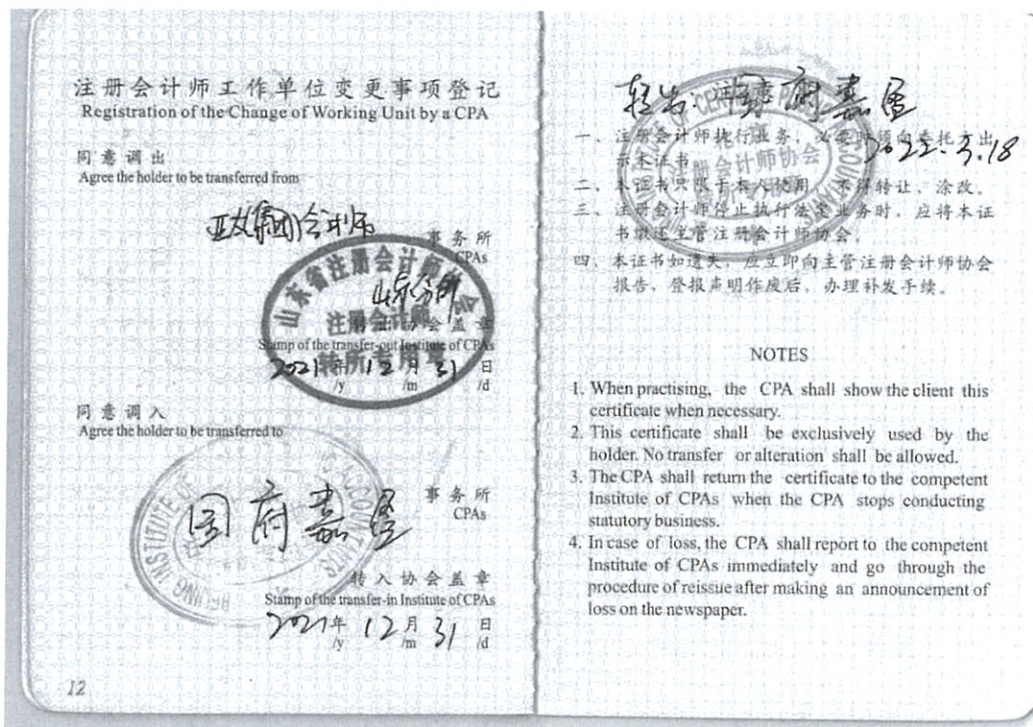 注册会计师工作单位变更事项登记
Registration of the Change of Working Unit by a CPA
同意调出
Agree the holder to be transferred from
集团)会计师
事务所
CPAs
山东分所
山东省注册会计师协会
注册会计师
转所专用章
协会盖章
Stamp of the transfer-out Institute of CPAs
2021年 12月 31日
/y /m /d
同意调入
Agree the holder to be transferred to
国府嘉盈
事务所
CPAs
转入协会盖章
Stamp of the transfer-in Institute of CPAs
2021年 12月 31日
/y /m /d
12
府嘉盈
2022.3.18
一、注册会计师执行业务,必要时须向委托方出
示本证书。
二、本证书只限于本人使用,不得转让、涂改。
三、注册会计师停止执行法定业务时,应将本证
书缴还主管注册会计师协会。
四、本证书如遗失,应立即向主管注册会计师协会
报告,登报声明作废后,办理补发手续。
NOTES
1. When practising, the CPA shall show the client this
certificate when necessary.
2. This certificate shall be exclusively used by the
holder. No transfer or alteration shall be allowed.
3. The CPA shall return the certificate to the competent
Institute of CPAs when the CPA stops conducting
statutory business.
4. In case of loss, the CPA shall report to the competent
Institute of CPAs immediately and go through the
procedure of reissue after making an announcement of
loss on the newspaper.